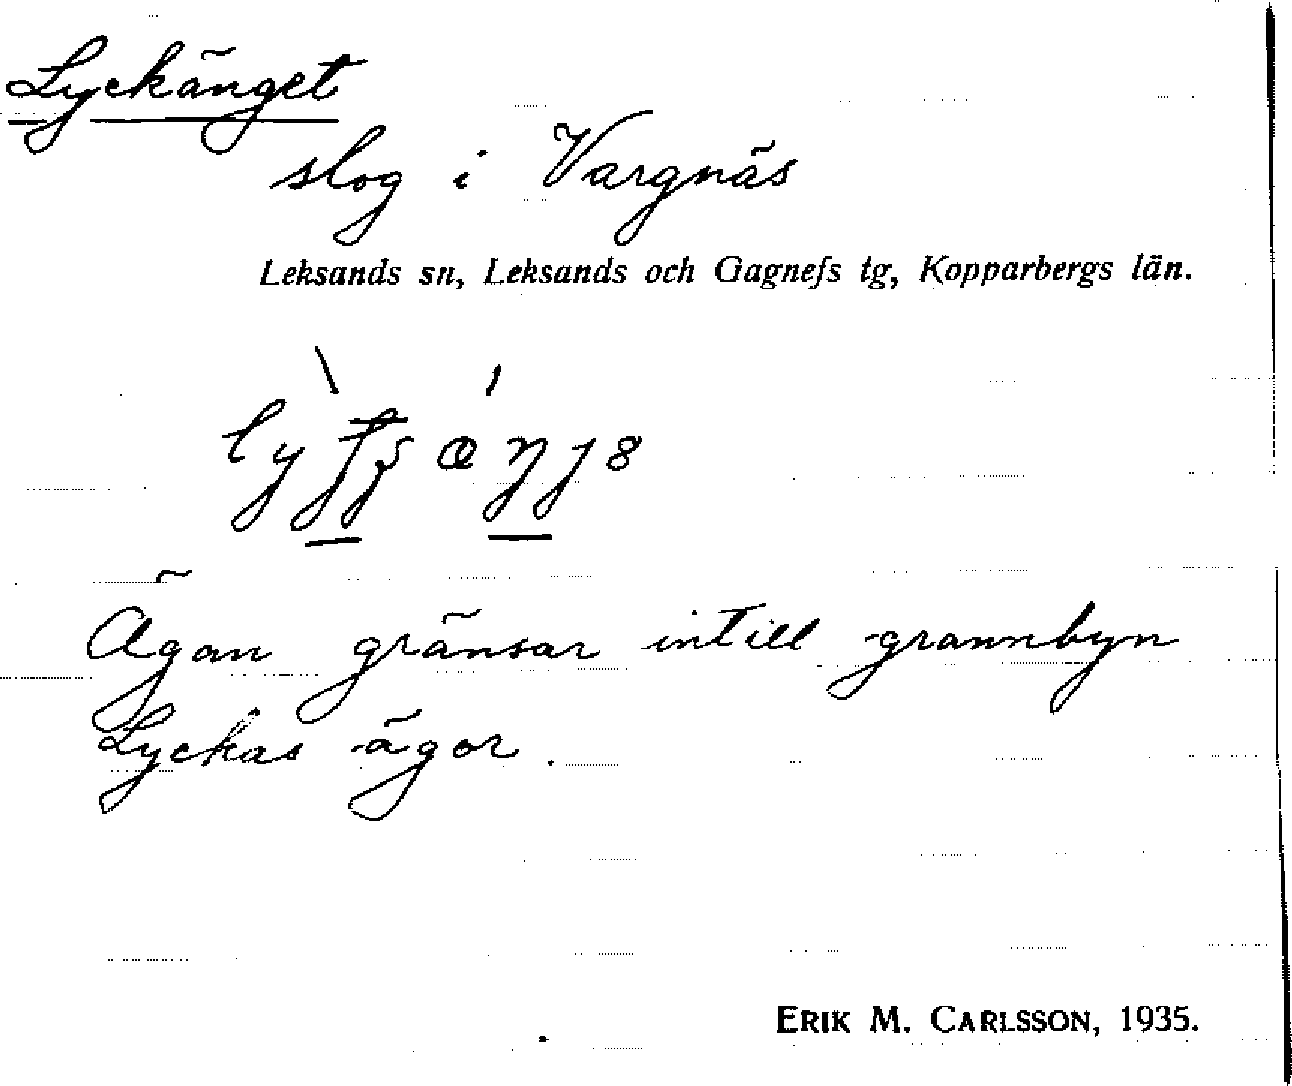 Lyckänget
slog i Vargnäs
Leksands sn, Leksands och Gagnefs tg, Kopparbergs län.
Ägan gränsar intill grannbyn
Lyckas ägor.
ERIK M. CARLSSON, 1935.